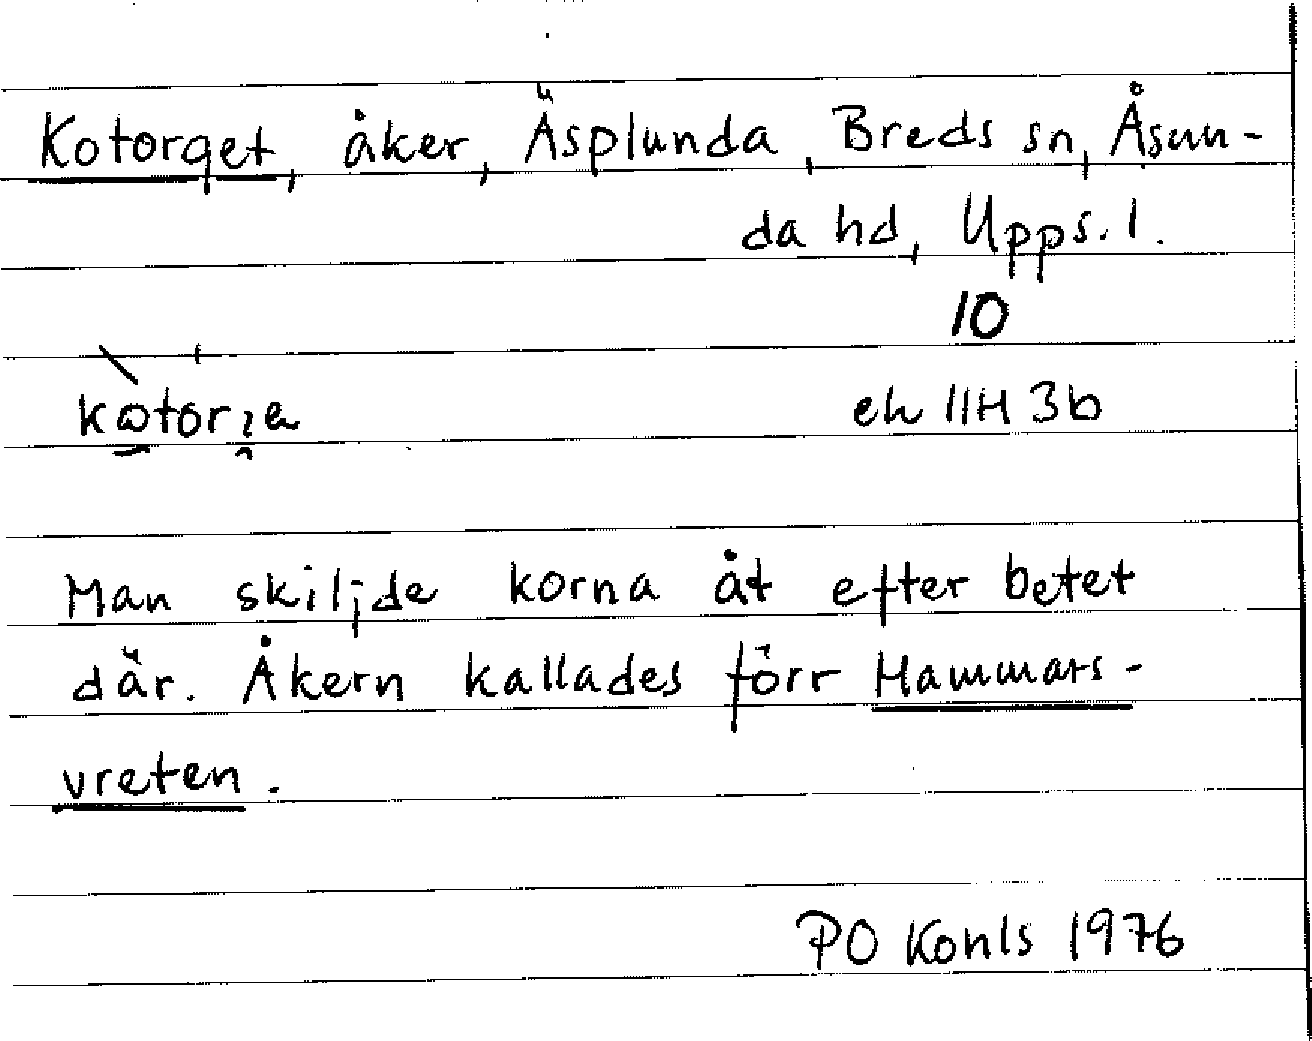 Kotorget, åker, Äsplunda, Breds sn, Åsun-
da hd, Upps. l.
10
ek 11H 3b
Man skiljde korna åt efter betet
där. Åkern kallades förr Hammars-
vreten.
PO Kohls 1976